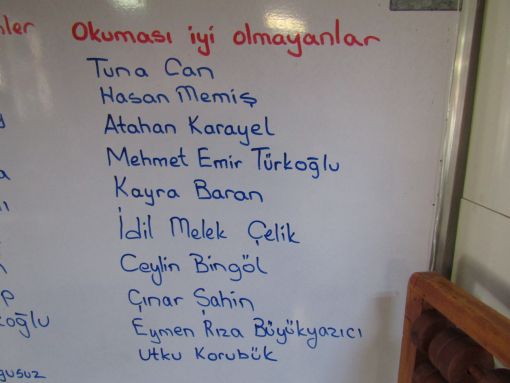 Okuması iyi olmayanlar
Tuna Can
Hasan Memiş
Atahan Karayel
Mehmet Emir Türkoğlu
Kayra Baran
İdil Melek Çelik
Ceylin Bingöl
Çınar Şahin
Eymen Rıza Büyükyazıcı
Utku Korubük